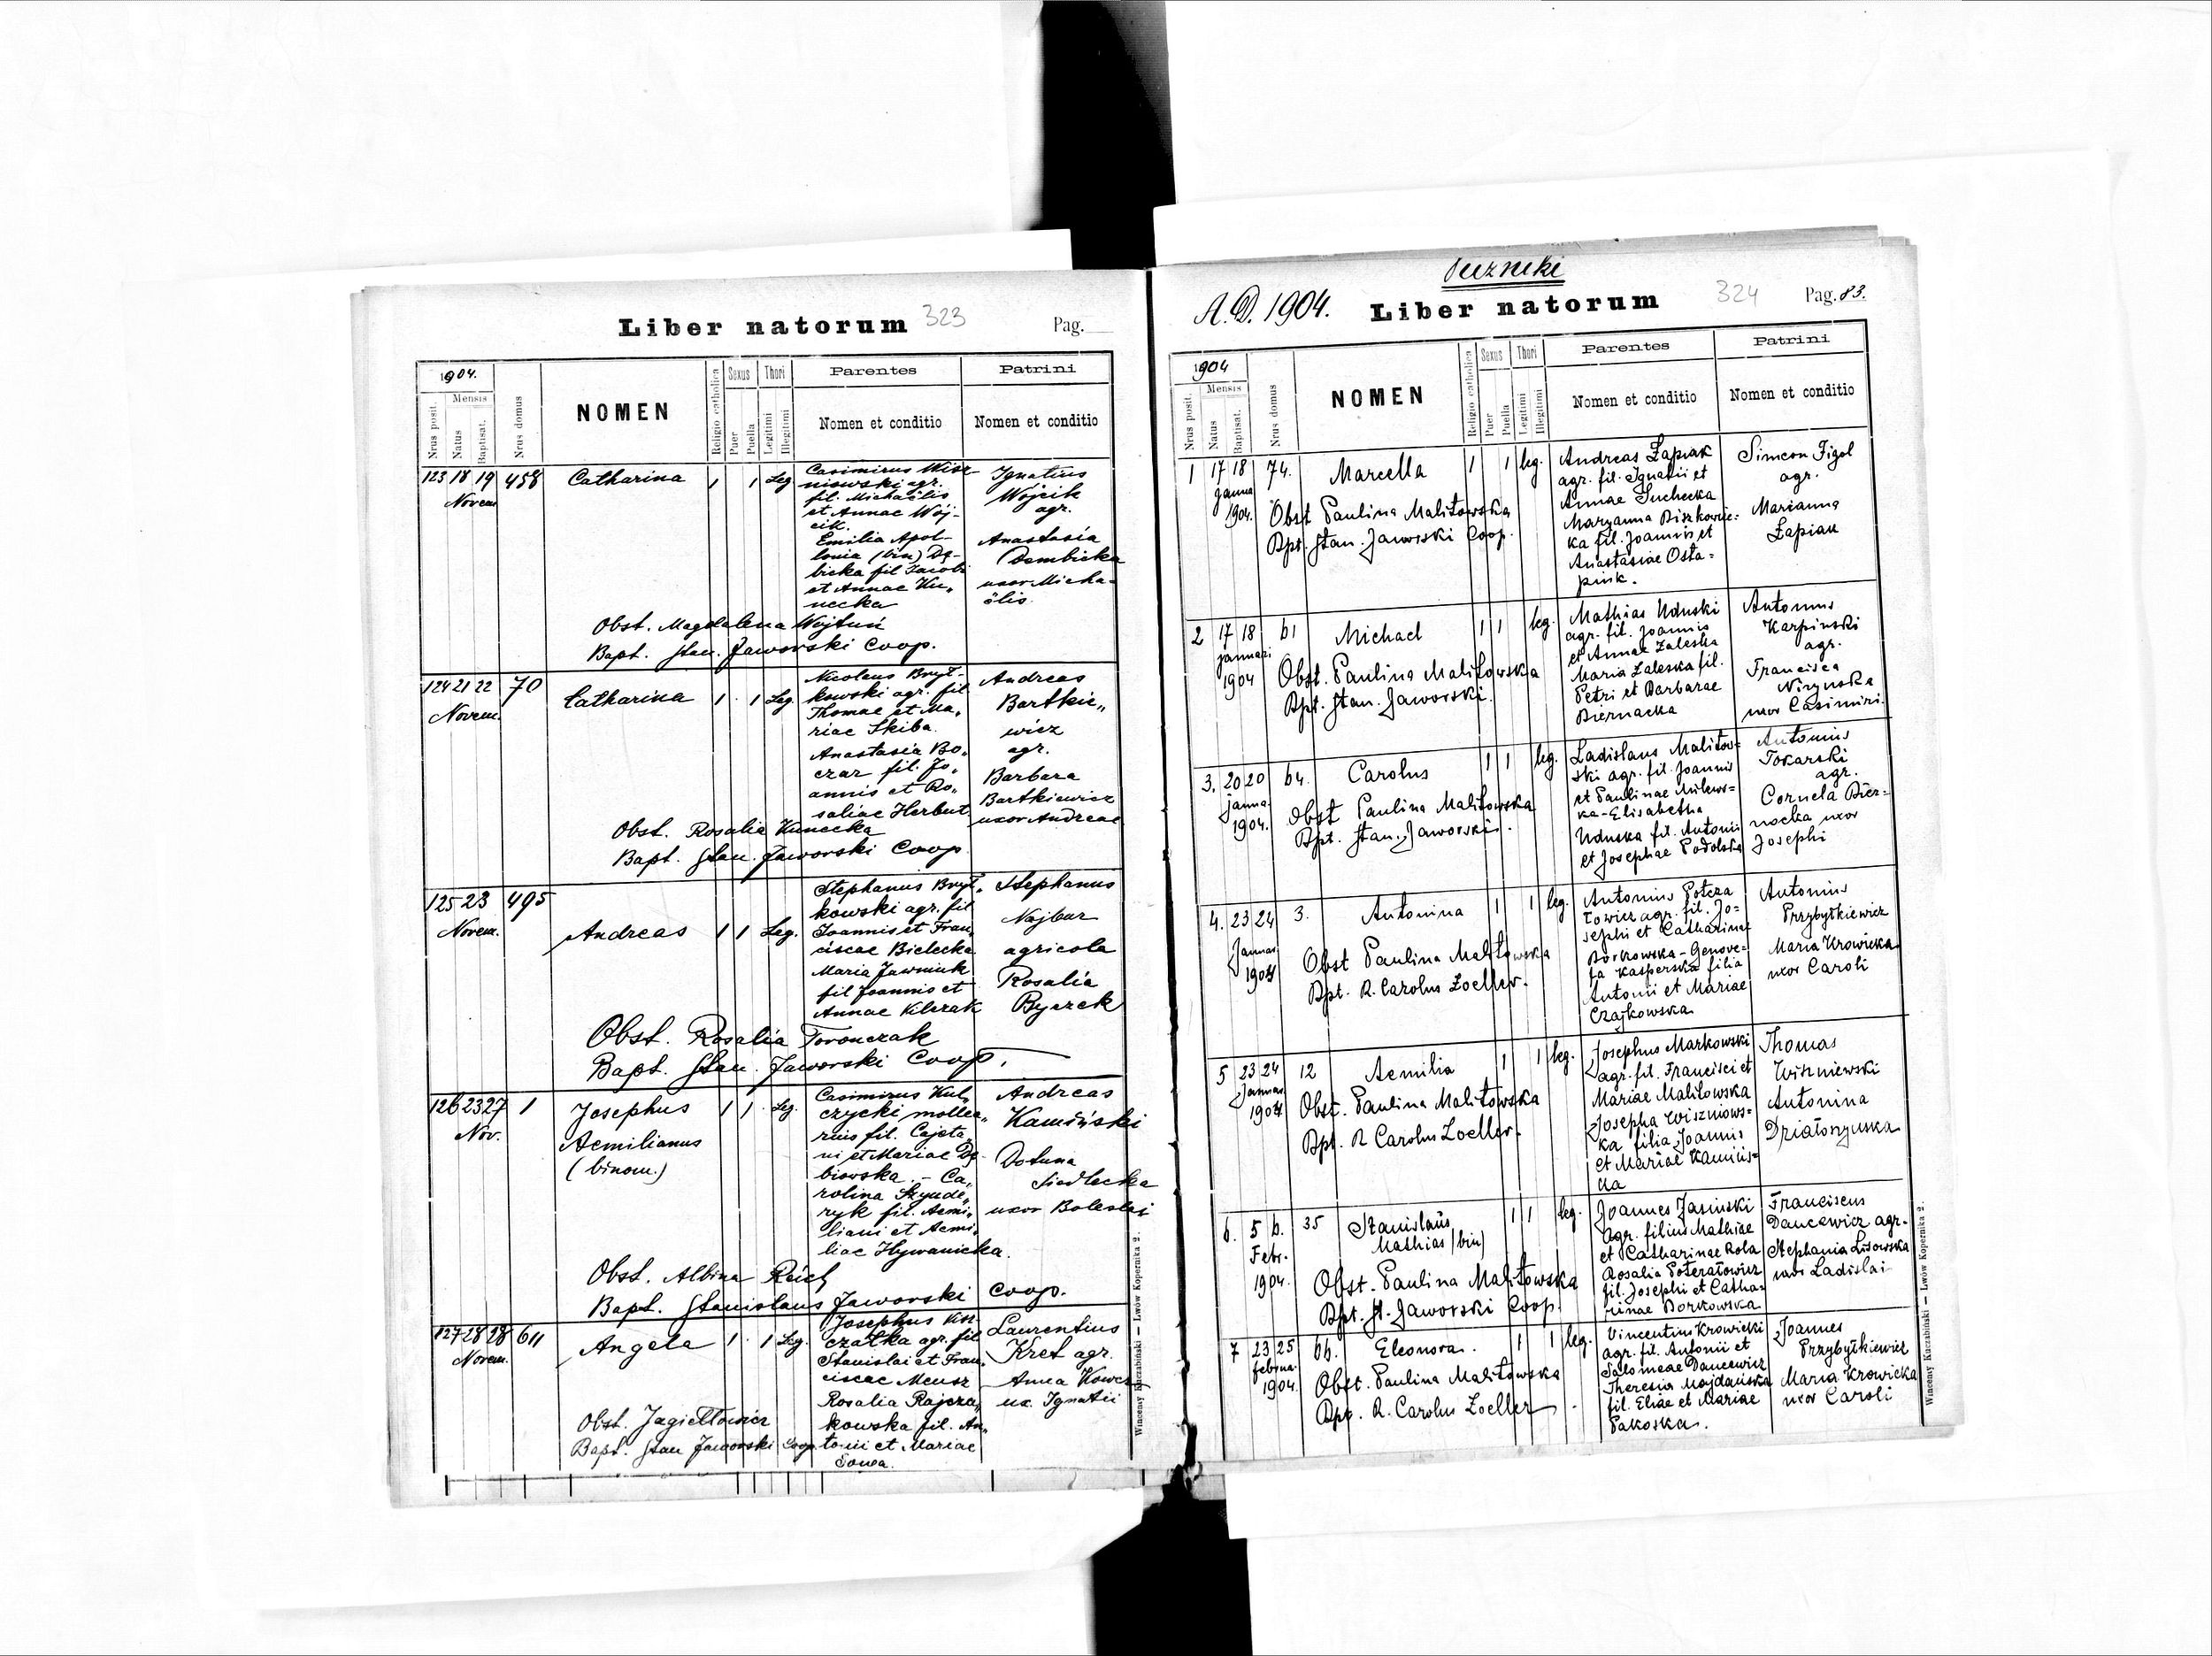 Liber natorum 323 Pag.
1904.
Nrus posit.
Mensis
Natus
Baptisat.
Nrus domus
NOMEN
Religio catholica
Sexus
Puer
Puella
Thori
Legitimi
Illegitimi
Parentes
Nomen et conditio
Patrini
Nomen et conditio
123 18 19 458 Catharina 1 1 Leg
Novem
Casimirus Wisz-
niowski agr.
fil. Michaëlis
et Annae Wój-
cik.
Emilia Apol-
lonia (bin) Dę-
bicka fil Jacobi
et Annae Ku-
necka
Ignatius
Wójcik
agr.
Anastasia
Dembicka
uxor Micha-
ëlis.
Obst. Magdalena Wojtuń
Bapt. Stan. Jaworski Coop.
124 21 22 70 Catharina 1 1 Leg.
Novem.
Nicolaus Bryt-
kowski agr. fil
Thomae et Ma-
riae Skiba.
Anastasia Bo-
czar fil. Jo-
annis et Ro-
saliae Herbut
Andreas
Bartkie-
wicz
agr.
Barbara
Bartkiewicz
uxor Andreae
Obst. Rosalia Kunecka
Bapt. Stan. Jaworski Coop
125 23 495 Andreas 1 1 Leg.
Novem.
Stephanus Bryt-
kowski agr. fil
Joannis et Fran-
ciscae Bielecka
Maria Jawniak
fil Joannis et
Annae
Stephanus
Najbar
agricola
Rosalia
Byczek
Obst. Rosalia Toronczak
Bapt. Stan. Jaworski Coop.
126 23 27 1 Josephus 1 1 Leg.
Nov. Aemilianus
(binom.)
Casimirus Kul-
czycki
fil. Cajeta-
ni et Mariae Dę-
biowska. - Ca-
rolina Szynde-
ryk fil. Aemi-
liani et Aemi-
liae Hywanicka.
Andreas
Kamiński
Siedlecka
uxor Boleslai
Obst. Albina Reich
Bapt. Stanislaus Jaworski Coop.
127 28 28 611 Angela 1 1 Leg.
Novem.
Josephus
czatka agr. fil
Stanislai et Fran-
ciscae Meusz
Rosalia Rajcza-
kowska fil. An-
tonii et Mariae
Sowa.
Laurentius
Kret agr.
Anna
ux. Ignatii
Obst. Jagiełłowicz
Bapt. Stan Jaworski Coop.
Wincenty Kuczabiński — Lwów Kopernika 2.
Puzniki
A.D. 1904. Liber natorum 324 Pag. 83.
1904
Nrus posit.
Mensis
Natus
Baptisat.
Nrus domus
NOMEN
Religio catholica
Sexus
Puer
Puella
Thori
Legitimi
Illegitimi
Parentes
Nomen et conditio
Patrini
Nomen et conditio
1 17 18 74. Marcella 1 1 leg.
Janua
1904.
Andreas Łapiak
agr. fil. Ignatii et
Annae Suchecka
Maryanna Biszkowie-
ka fil. Joannis et
Anastasiae Osta-
piuk.
Simeon Figol
agr.
Marianna
Łapiak
Obst Paulina Malitowska
Bpt. Stan. Jaworski Coop.
2 17 18 61 Michael 1 1 leg.
januari
1904
Mathias Uduski
agr. fil. Joannis
et Annae Zaleska
Maria Zaleska fil.
Petri et Barbarae
Biernacka
Antonius
Karpinski
agr.
Francisca
Nizynska
uxor Casimiri.
Obst. Paulina Malitowska
Bpt. Stan. Jaworski.
3. 20 20 64. Carolus 1 1 leg.
janua
1904.
Ladislaus Malitow-
ski agr. fil. Joannis
et Paulinae Milews-
ka - Elisabetha
Uduska fil. Antonii
et Josephae Podolska
Antonius
Tokarski
agr.
Cornela Bier-
nacka uxor
Josephi
Obst Paulina Malitowska
Bpt. Stan. Jaworski.
4. 23 24 3. Antonina 1 1 leg.
Januar
1904
Antonius Potera
towicz agr. fil. Jo-
sephi et Catharinae
Borkowska - Genove-
fa Kasperska filia
Antonii et Mariae
Czajkowska
Antonius
Przybytkiewicz
Maria Krowicka
uxor Caroli
Obst Paulina Malitowska
Bpt. R. Carolus Zoeller.
5 23 24 12 Aemilia 1 1 leg.
Januar
1904
Josephus Markowski
agr. fil. Francisci et
Mariae Malitowska
Josepha Wiszniows-
ka filia Joannis
et Mariae Kamińs-
ka
Thomas
Wiszniewski
Antonina
Działoszynska
Obst. Paulina Malitowska
Bpt. R Carolus Zoeller.
6. 5 6. 35 Stanislaus 1 1 leg.
Febr. Mathias (bin)
1904.
Joannes Jasinski
agr. filius Mathiae
et Catharinae Rola
Rosalia Poteratowicz
fil. Josephi et Catha-
rinae Borkowska
Franciscus
Dancewicz agr.
Stephania Lisowska
uxor Ladislai
Obst. Paulina Malitowska
Bpt. St. Jaworski Coop.
7 23 25 66. Eleonora. 1 1 leg.
februa.
1904.
Vincentius Krowicki
agr. fil. Antonii et
Salomeae Dancewicz
Theresia Majdańska
fil. Eliae et Mariae
Pakoska.
Joannes
Przybytkiewicz
Maria Krowicka
uxor Caroli
Obst. Paulina Malitowska
Bpt. R. Carolus Zoeller
Wincenty Kuczabiński — Lwów Kopernika 2.